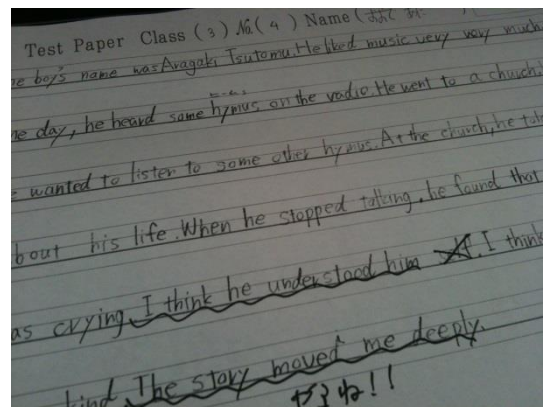 Test Paper Class (3) No. (4) Name (
e boy's name was Aragaki Tsutomu. He liked music very very much
e day, he heard some hymus, on the radio. He went to a church.
e wanted to lister to some other hymus. At the church, he tal
bout his life. When he stopped talking, he found that
as crying. I think he understood him I think
kind. The story moved me deeply.